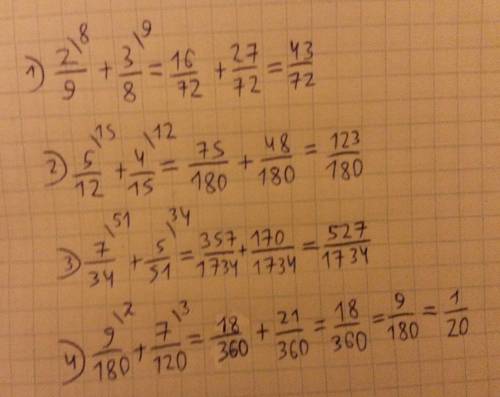 1) 2/9 \8 + 3/8 \9 = 16/72 + 27/72 = 43/72
2) 5/12 \15 + 4/15 \12 = 75/180 + 48/180 = 123/180
3) 7/34 \51 + 5/51 \34 = 357/1734 + 170/1734 = 527/1734
4) 9/180 \2 + 7/120 \3 = 18/360 + 21/360 = 18/360 = 9/180 = 1/20